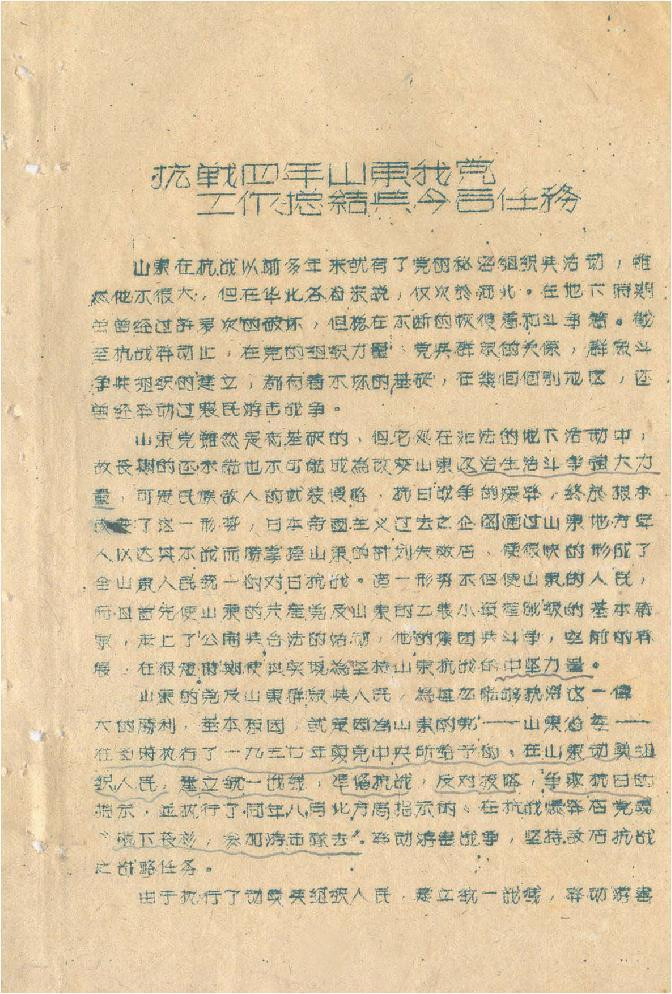 抗战四年山东我党
工作总结与今后任务
山东在抗战以前多年来就有了党的秘密组织与活动，虽
然他不很大，但在华北各省来说，仅次于河北。在地下时期
也曾经过许多次的破坏，但总在不断的恢复着和斗争着。截
至抗战发动止，在党的组织力量、党与群众的关系，群众斗
争与组织的建立，都有着不坏的基础，在几个个别地区，还
曾经举动过农民游击战争。
山东党虽然是有基础的，但它处在非法的地下活动中，
故长期的还未能也不可能成为改变山东政治生活斗争强大力
量，可是民族敌人的武装侵略，抗日战争的爆发，终于根本
改变了这一形势，日本帝国主义过去之企图通过山东地方
人以达其不战而胜掌握山东的计划失败后，便很快的形成了
全山东人民统一的对日抗战。这一形势不但使山东的人民，
而且首先使山东的共产党及山东的工农小资产阶级的基本群
众，走上了公开与合法的，他的集团与斗争，空前的开
展，在很短时期便兴实现为坚持山东抗战的中坚力量。
山东的党及山东群众与人民，为甚么能够获得这一伟
大的胜利，基本原因，就是因为山东的党——山东省委——
在当时执行了一九三七年 党中央所给予的、在山东动员组
织人民，建立统一战线，准备抗战，反对投降，争取抗日的
指示，并执行了同年八月北方局指示的、在抗战爆发后党员
“脱下长衫，参加游击队去”，举动游击战争，坚持敌后抗战
之战略任务。
由于执行了动员与组织人民，建立统一战线，发动游击